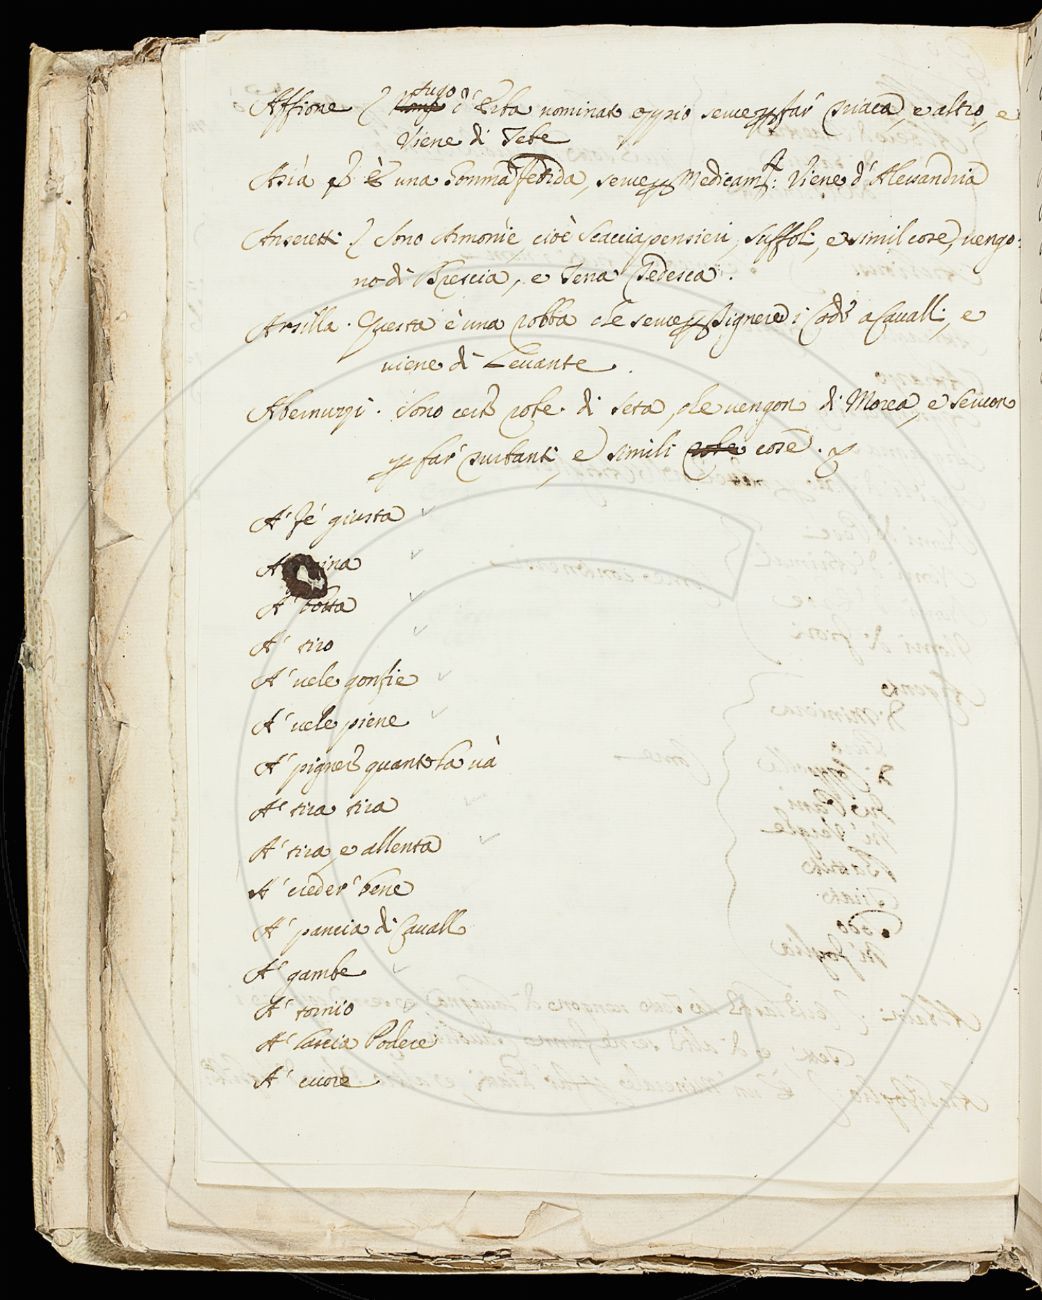 Affione sugo d'Erba nominato oppio serue p far triaca, e altro, e
Viene di Tebe
Asià è una Gomma fetida, serue p Medicam.ti: Viene d'Alessandria
Anseretti Sono Armonie, cioè Scacciapensieri, Suffoli, e simil cose, uengo-
no di Brescia, e Terra Tedesca.
Arsilla. Questa è una robba che serue p tignere i a Caualli, e
uiene di Leuante.
Abernuzzi. Sono certe robe di Seta, che uengon di Morea, e seruon
p far turbanti, e simili robe cose.
A' fè giusta
A' botta
A' tiro
A' uele gonfie
A' uele piene
A' pigner quanto la uà
A' tira tira
A' tira, e allenta
A' creder bene
A' pancia di Cauallo
A' gambe
A' tornio
A' lascia Podere
A' cuore